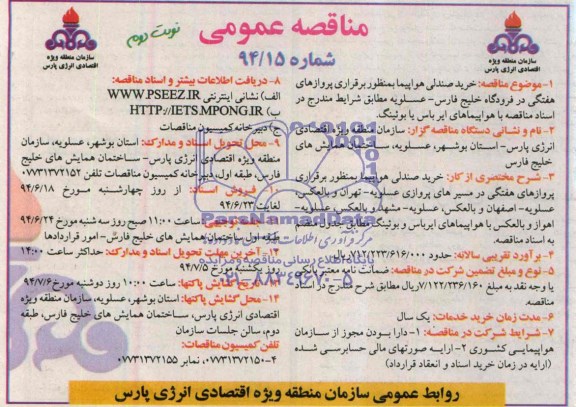 مناقصه عمومی
نوبت دوم
شماره ۹۴/۱۵
سازمان منطقه ویژه
اقتصادی انرژی پارس
سازمان منطقه ویژه
اقتصادی انرژی پارس
۱-موضوع مناقصه: خرید صندلی هواپیما بمنظور برقراری پروازهای
هفتگی در فرودگاه خلیج فارس- عسلویه مطابق شرایط مندرج در
اسناد مناقصه با هواپیماهای ایر باس یا بوئینگ.
۲- نام و نشانی دستگاه مناقصه گزار: سازمان منطقه ویژه اقتصادی
انرژی پارس- استان بوشهر، عسلویه، ساختمان همایش های
خلیج فارس
۳- شرح مختصری از کار: خرید صندلی هواپیما بمنظور برقراری
پروازهای هفتگی در مسیر های پروازی عسلویه- تهران و بالعکس،
عسلویه- اصفهان و بالعکس، عسلویه- مشهد و بالعکس، عسلویه-
اهواز و بالعکس با هواپیماهای ایرباس و بوئینگ مطابق جدول منضم
به اسناد مناقصه.
۴- برآورد تقریبی سالانه: حدود ۷۱۲/۲۲۳/۶۱۶/۰۰۰ ریال
۵- نوع و مبلغ تضمین شرکت در مناقصه: ضمانت نامه معتبر بانکی
یا وجه نقد به مبلغ ۷/۱۲۲/۲۳۶/۱۶۰ ریال مطابق شرح مندرج در اسناد
مناقصه.
۶- مدت زمان خرید خدمات: یک سال
۷- شرایط شرکت در مناقصه: ۱- دارا بودن مجوز از سازمان
هواپیمایی کشوری ۲- ارایه صورتهای مالی حسابرسی شده
(ارایه در زمان خرید اسناد و انعقاد قرارداد)
۸- دریافت اطلاعات بیشتر و اسناد مناقصه:
الف) نشانی اینترنتی WWW.PSEEZ.IR
ب) HTTP://IETS.MPONG.IR
ج) دبیرخانه کمیسیون مناقصات
۹- محل تحویل اسناد و مدارک: استان بوشهر، عسلویه، سازمان
منطقه ویژه اقتصادی انرژی پارس- ساختمان همایش های خلیج
فارس، طبقه اول، دبیرخانه کمیسیون مناقصات تلفن ۰۷۷۳۱۳۷۲۱۵۲
۱۰- فروش اسناد: از روز چهارشنبه مورخ ۹۴/۶/۱۸
لغایت ۹۴/۶/۲۳
توجیهی: ساعت ۱۱:۰۰ صبح روز سه شنبه مورخ ۹۴/۶/۲۴
طبقه اول ساختمان همایش های خلیج فارس- امور قراردادها
۱۲- آخرین مهلت تحویل اسناد و مدارک: حداکثر ساعت ۱۴:۰۰
روز یکشنبه مورخ ۹۴/۷/۵
۱۳- تاریخ گشایش پاکتها: ساعت ۱۰:۰۰ روز دوشنبه مورخ ۹۴/۷/۶
۱۴- محل گشایش پاکتها: استان بوشهر، عسلویه، سازمان منطقه ویژه
اقتصادی انرژی پارس، ساختمان همایش های خلیج فارس، طبقه
دوم، سالن جلسات سازمان
تلفن کمیسیون مناقصات:
۰۷۷۳۱۳۷۲۱۵۰-۴، نمابر ۰۷۷۳۱۳۷۲۱۵۵
ParsNamadData
پایگاه اطلاع رسانی مناقصه و مزایده
۰۲۱-۸۸۳۴۹۶۷۰-۵
روابط عمومی سازمان منطقه ویژه اقتصادی انرژی پارس